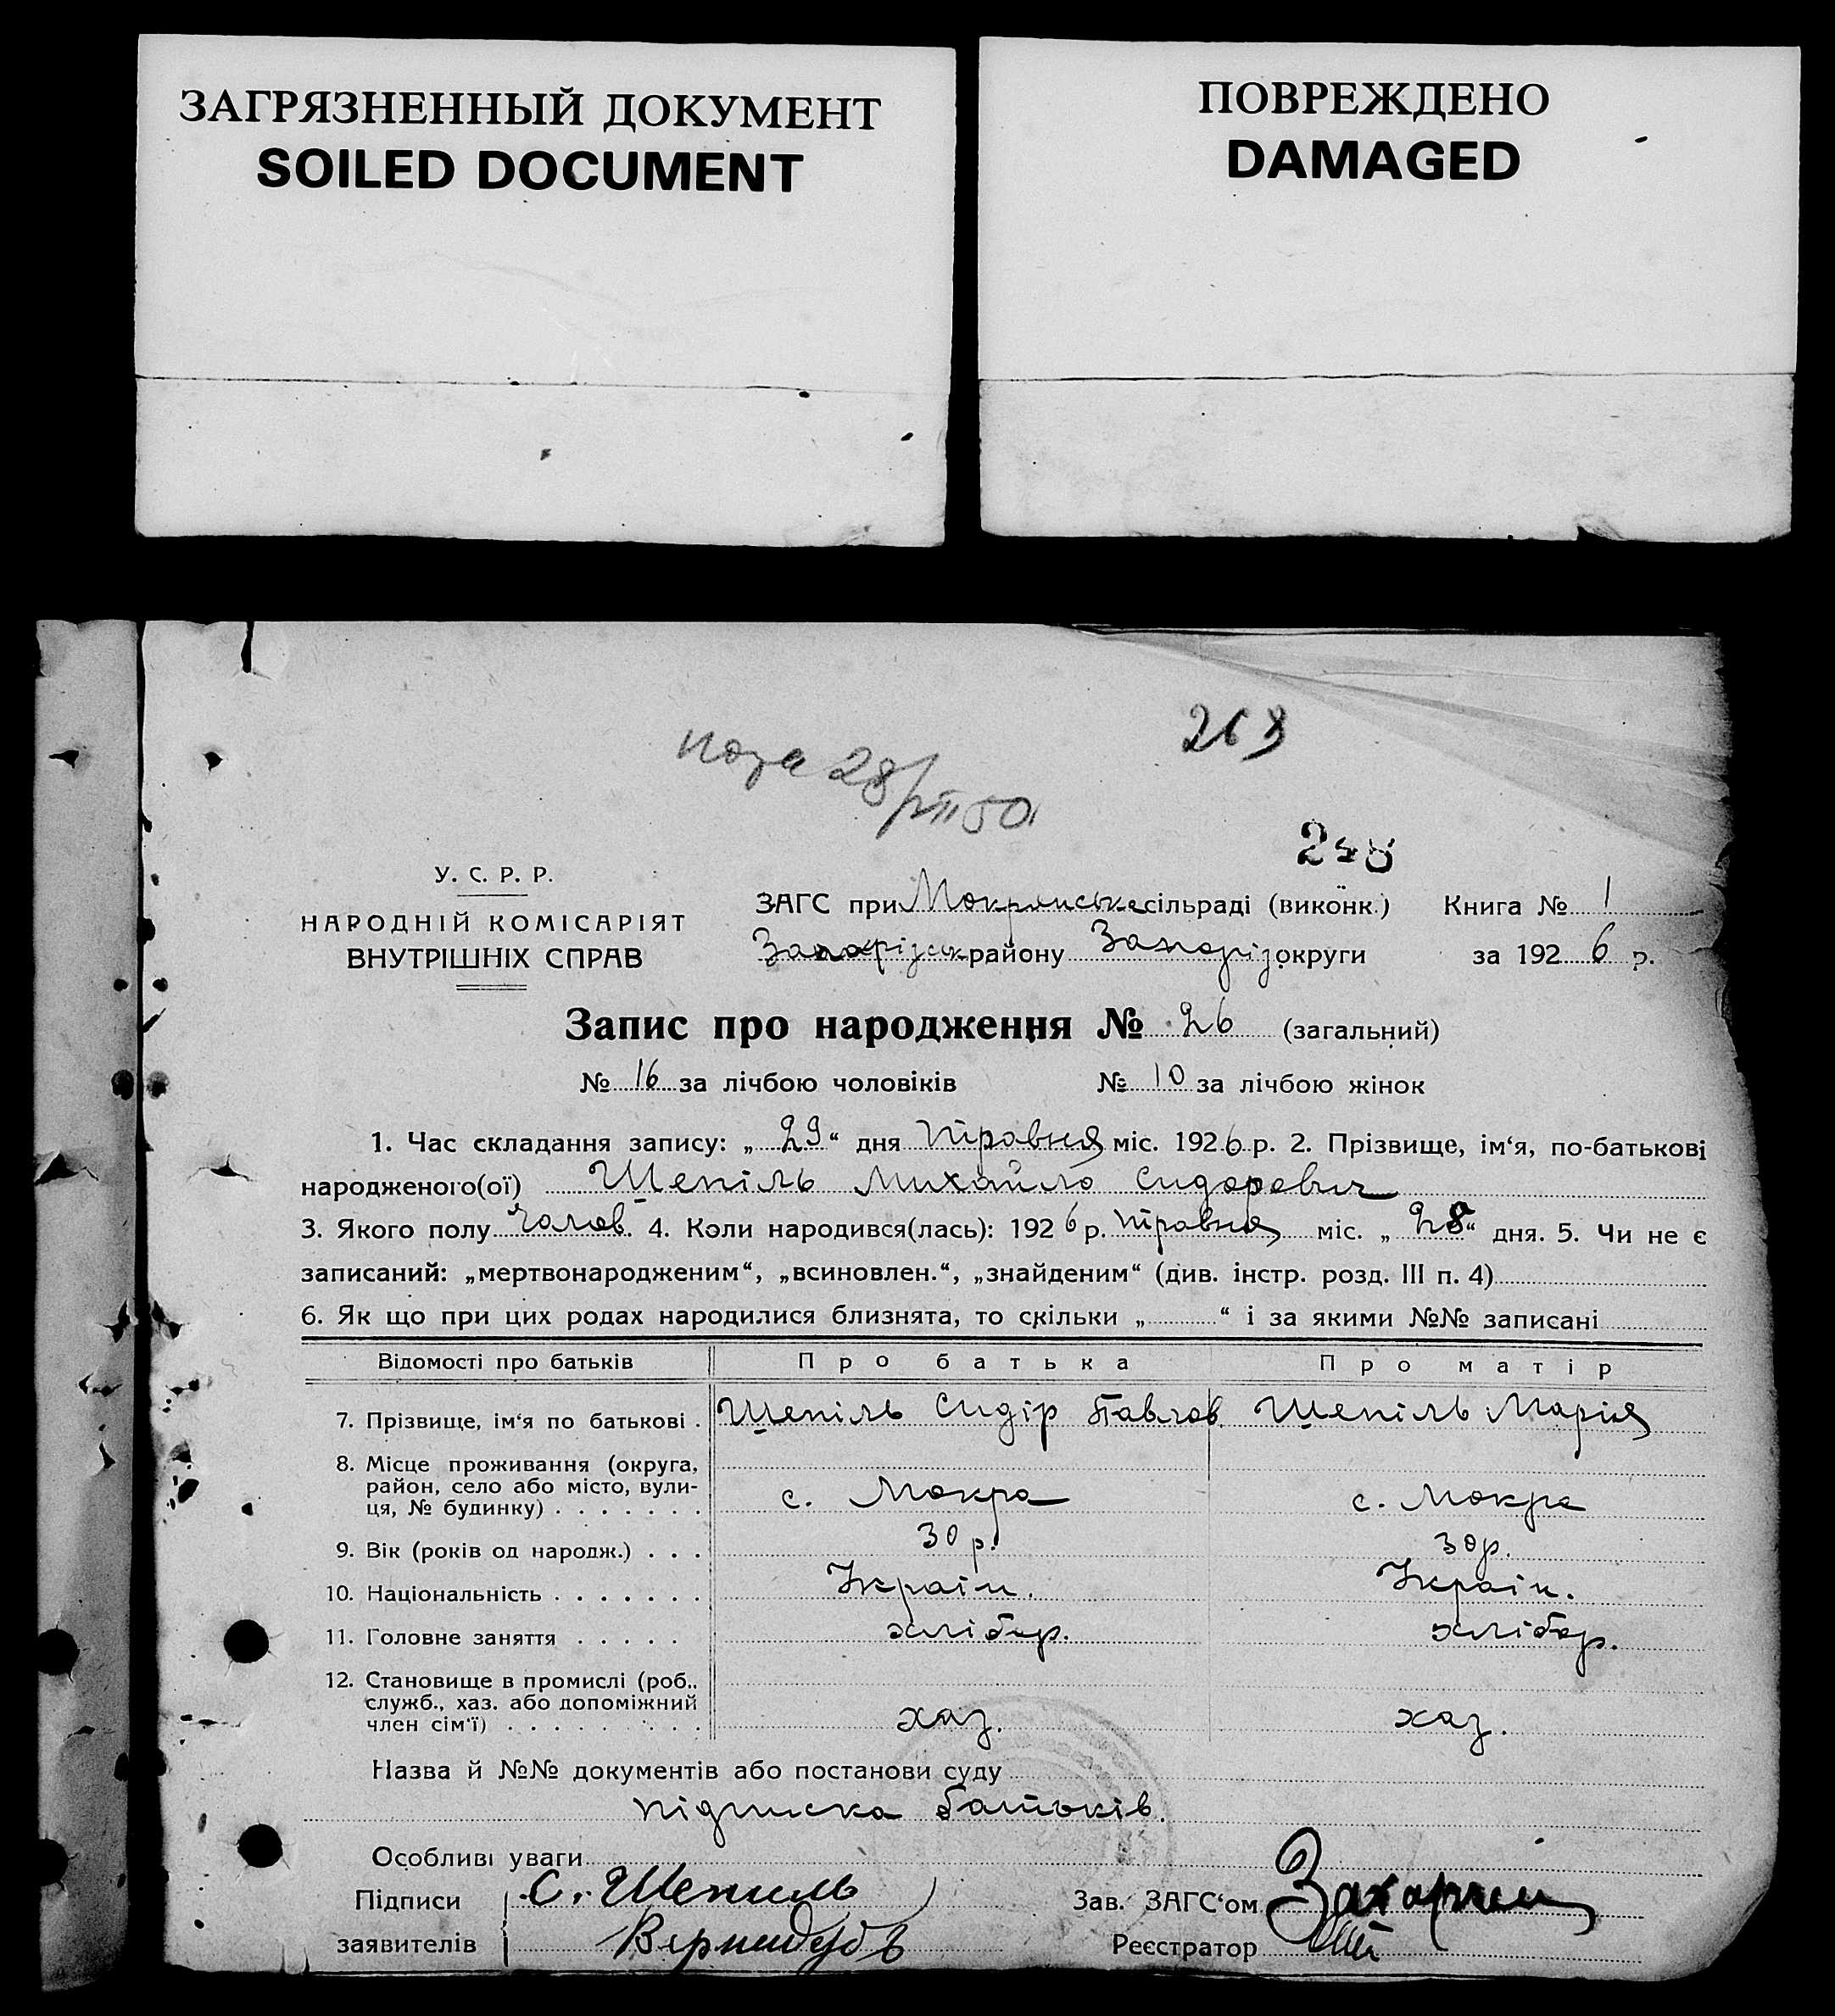 ЗАГРЯЗНЕННЫЙ ДОКУМЕНТ
SOILED DOCUMENT
ПОВРЕЖДЕНО
DAMAGED
263
28/VII 50
У. С. Р. Р.
НАРОДНІЙ КОМІСАРІЯТ
ВНУТРІШНІХ СПРАВ
ЗАГС при Мокрянське сільраді (виконк.) Книга № 1
Запорізськ району Запоріз округи за 1926 р.
Запис про народження № 26 (загальний)
№ 16 за лічбою чоловіків № 10 за лічбою жінок
1. Час складання запису: „29“ дня травня міс. 1926 р. 2. Прізвище, ім‘я, по-батькові
народженого(ої) Щепіль Михайло Сидорович
3. Якого полу чолов. 4. Коли народився(лась): 1926 р. травня міс. „28“ дня. 5. Чи не є
записаний: „мертвонародженим“, „всиновлен.“, „знайденим“ (див. інстр. розд. III п. 4)
6. Як що при цих родах народилися близнята, то скільки „ “ і за якими №№ записані
Відомості про батьків Про батька Про матір
7. Прізвище, ім‘я по батькові . Щепіль Сидір Павлов Щепіль Марія
8. Місце проживання (округа,
район, село або місто, вули-
ця, № будинку) . . . . . . . с. Мокра с. Мокра
9. Вік (років од народж.) . . . 30 р. 30 р.
10. Національність . . . . . . . Украін. Украін.
11. Головне заняття . . . . . хлібор. хлібор.
12. Становище в промислі (роб.,
служб., хаз. або допоміжний
член сім‘ї) . . . . . . . . . хаз. хаз.
Назва й №№ документів або постанови суду
підписка батьків.
Особливі уваги
Підписи С. Щепиль Зав. ЗАГС‘ом
заявителів Вернидубъ Реєстратор